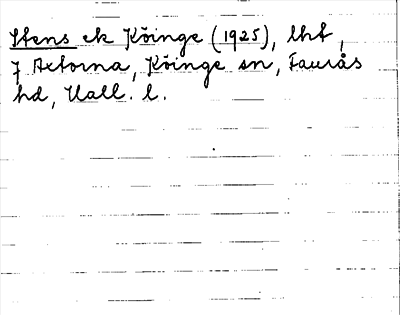 Stens ek Köinge (1925), lht,
7 Axtorna, Köinge sn, Faurås
hd, Hall. l.